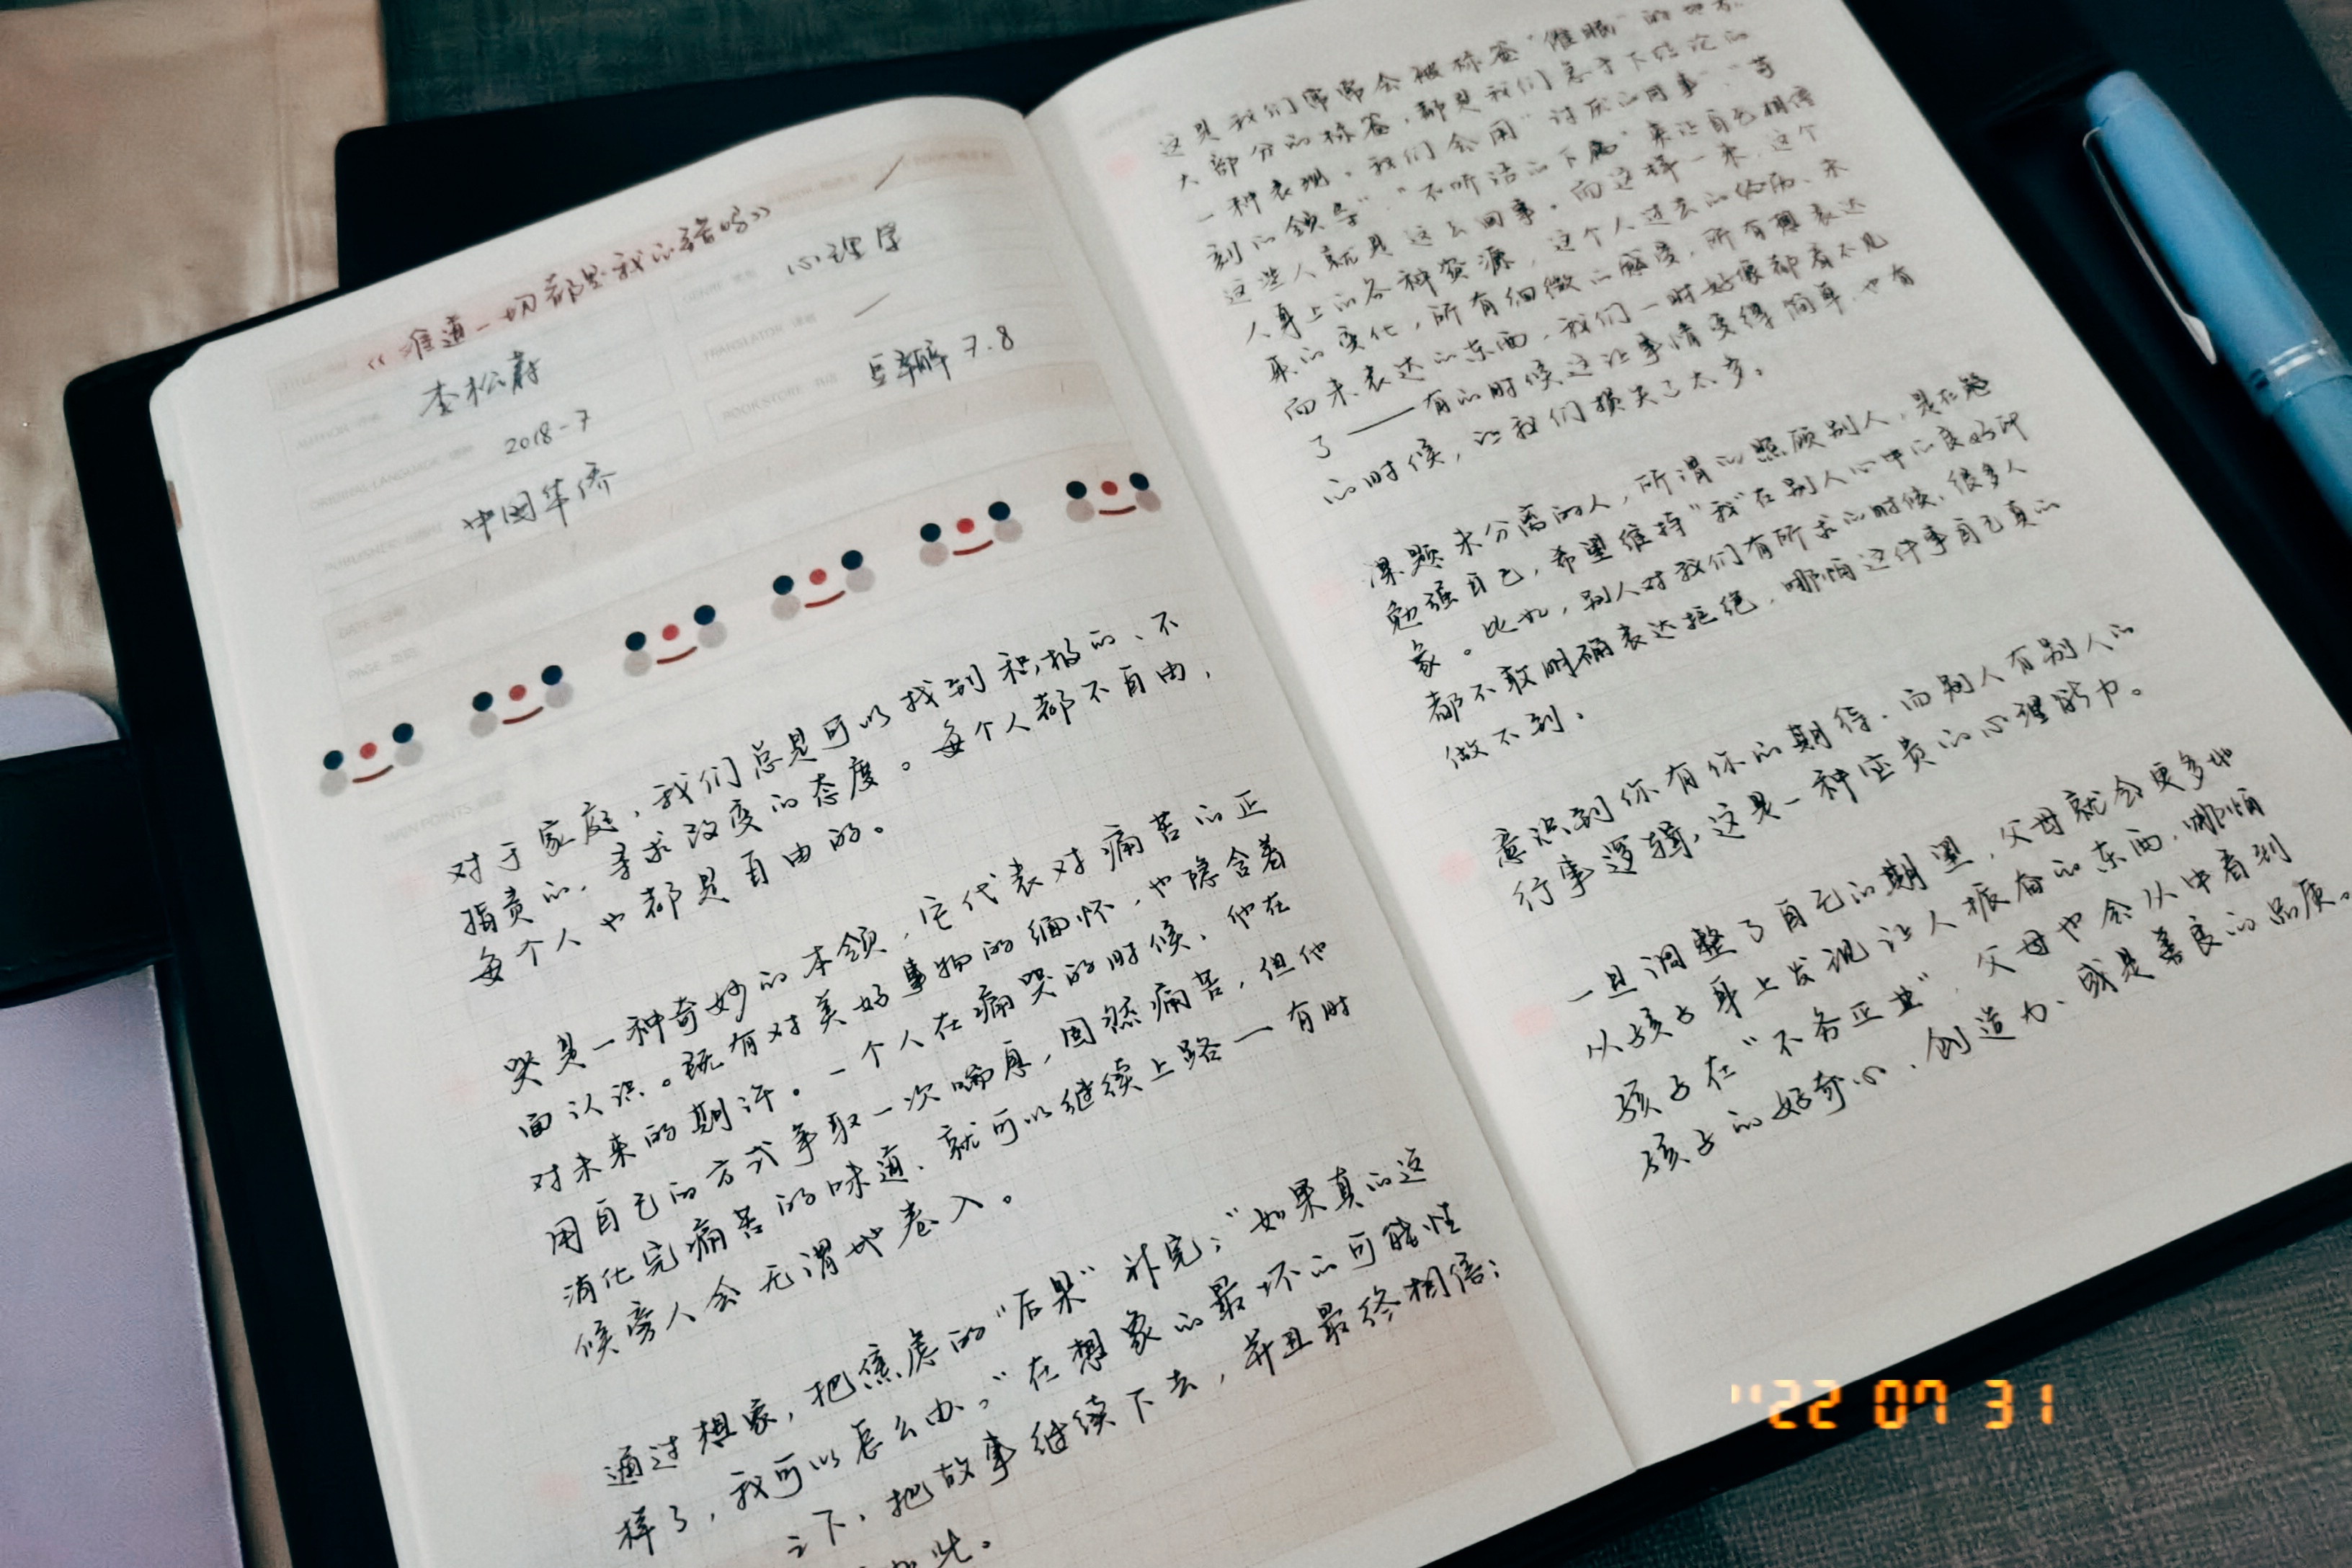 《难道一切都是我的错吗》
李松蔚
心理学
2018-7
TRANSLATOR 译者
中国华侨
豆瓣 7.8
对于家庭，我们总是可以找到积极的、不
指责的、寻求改变的态度。每个人都不自由，
每个人也都是自由的。
哭是一种奇妙的本领，它代表对痛苦的正
面认识。既有对美好事物的缅怀，也隐含着
对未来的期许。一个人在痛哭的时候，他在
用自己的方式争取一次喘息，固然痛苦，但他
消化完痛苦的味道，就可以继续上路——有时
候旁人会无谓地卷入。
通过想象，把焦虑的“后果”补完：“如果真的这
样了，我可以怎么办。”在想象的最坏的可能性
之下，把故事继续下去，并且最终相信：
如此。
这是我们常常会被标签“催眠”的
大部分的标签，都是我们急于下结论的
一种表现。我们会用“讨厌的同事”、“苛
刻的领导”、“不听话的下属”来让自己相信
这些人就是这么回事。而这样一来，这个
人身上的各种资源，这个人过去的经历、未
来的变化，所有细微的解度，所有想表达
而未表达的东西，我们一时好像都看不见
了——有的时候这让事情变得简单，也有
的时候，让我们损失了太多。
课题未分离的人，所谓的照顾别人，是在勉
勉强自己，希望维持“我”在别人心中的良好印
象。比如，别人对我们有所求的时候，很多人
都不敢明确表达拒绝，哪怕这件事自己真的
做不到。
意识到你有你的期待，而别人有别人的
行事逻辑，这是一种宝贵的心理能力。
一旦调整了自己的期望，父母就会更多地
从孩子身上发现让人振奋的东西，哪怕
孩子在“不务正业”，父母也会从中看到
孩子的好奇心、创造力、或是善良的品质。
'22 07 31